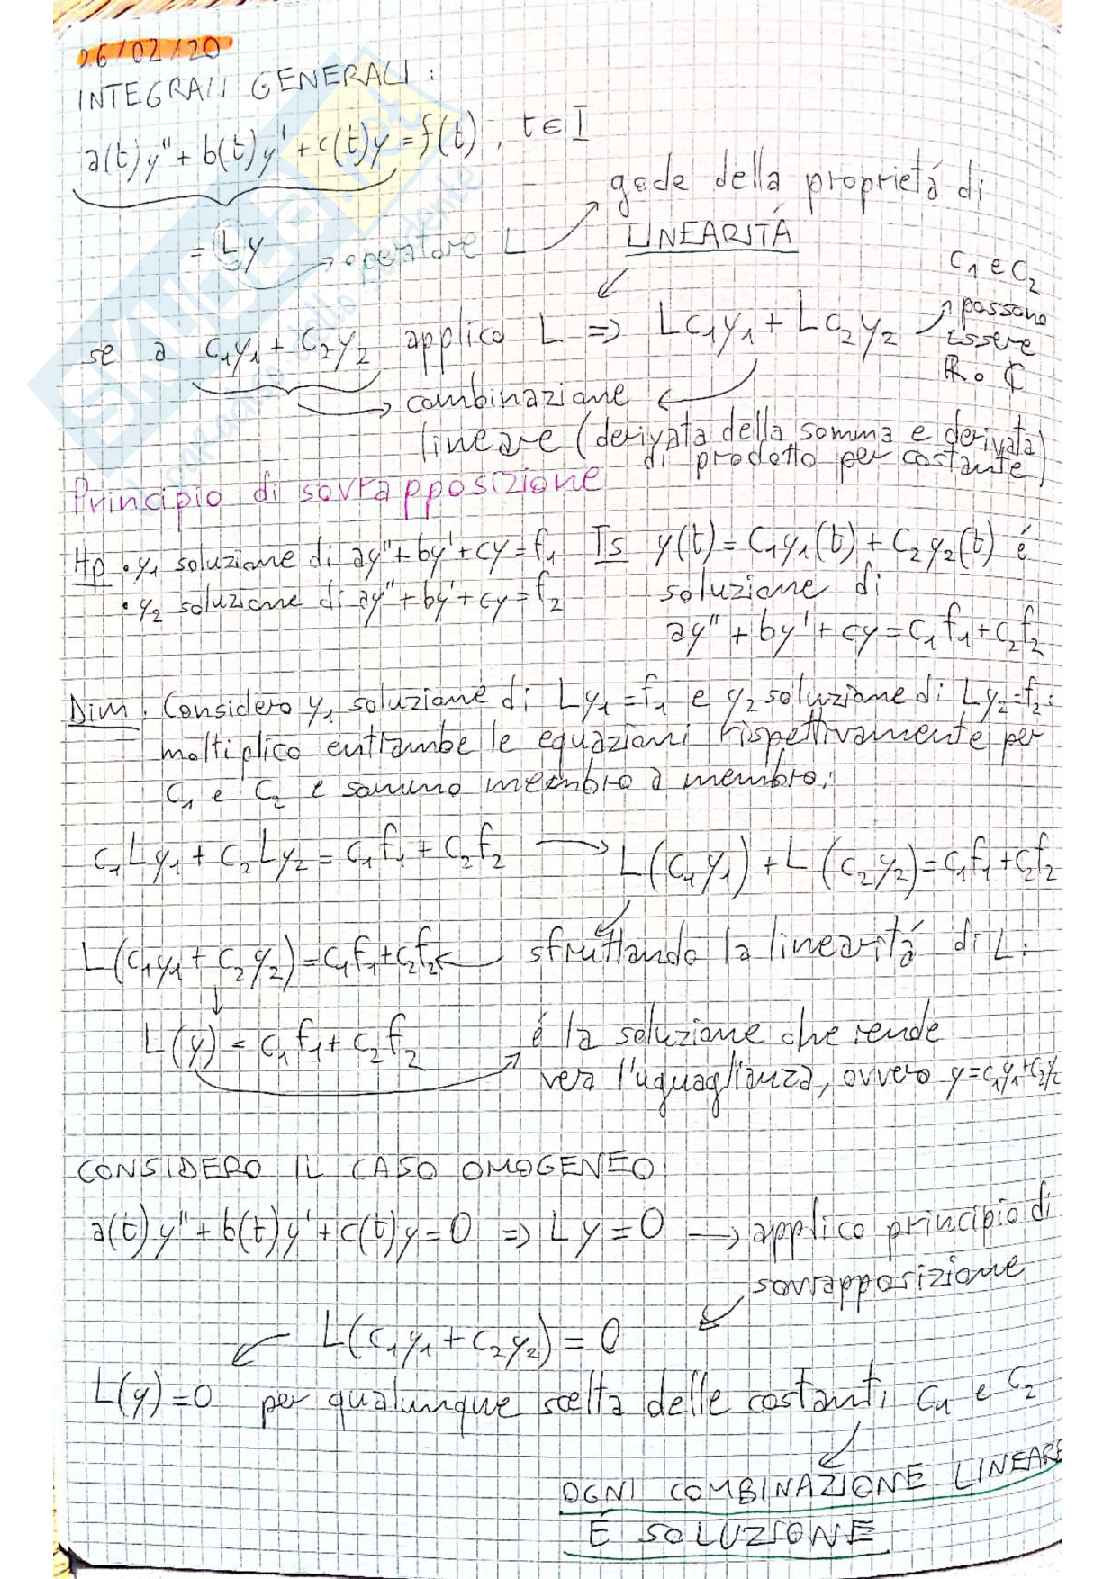 26/02/20
INTEGRALI GENERALI:
a(t)y" + b(t)y' + c(t)y = f(t), t ∈ I
= Ly → operatore L
gode della proprietá di
LINEARITÁ
se a c₁y₁ + c₂y₂ applico L => Lc₁y₁ + Lc₂y₂
c₁ e c₂
possono
essere
ℝ o ℂ
combinazione
lineare (derivata della somma e derivata
di prodotto per costante)
Principio di sovrapposizione
Hp • y₁ soluzione di ay"+by'+cy=f₁
• y₂ soluzione di ay"+by'+cy=f₂
Ts y(t) = c₁y₁(t) + c₂y₂(t) é
soluzione di
ay" + by' + cy = c₁f₁ + c₂f₂
Dim. Considero y₁ soluzione di Ly₁ = f₁ e y₂ soluzione di Ly₂ = f₂:
moltiplico entrambe le equazioni rispettivamente per
c₁ e c₂ e sommo membro a membro:
c₁Ly₁ + c₂Ly₂ = c₁f₁ + c₂f₂ → L(c₁y₁) + L(c₂y₂) = c₁f₁ + c₂f₂
L(c₁y₁ + c₂y₂) = c₁f₁ + c₂f₂ ← sfruttando la linearitá di L.
L(y) = c₁f₁ + c₂f₂
é la soluzione che rende
vera l'uguaglianza, ovvero y = c₁y₁ + c₂y₂
CONSIDERO IL CASO OMOGENEO
a(t)y" + b(t)y' + c(t)y = 0 => Ly = 0 → applico principio di
sovrapposizione
L(c₁y₁ + c₂y₂) = 0
L(y) = 0 per qualunque scelta delle costanti c₁ e c₂
OGNI COMBINAZIONE LINEARE
É SOLUZIONE